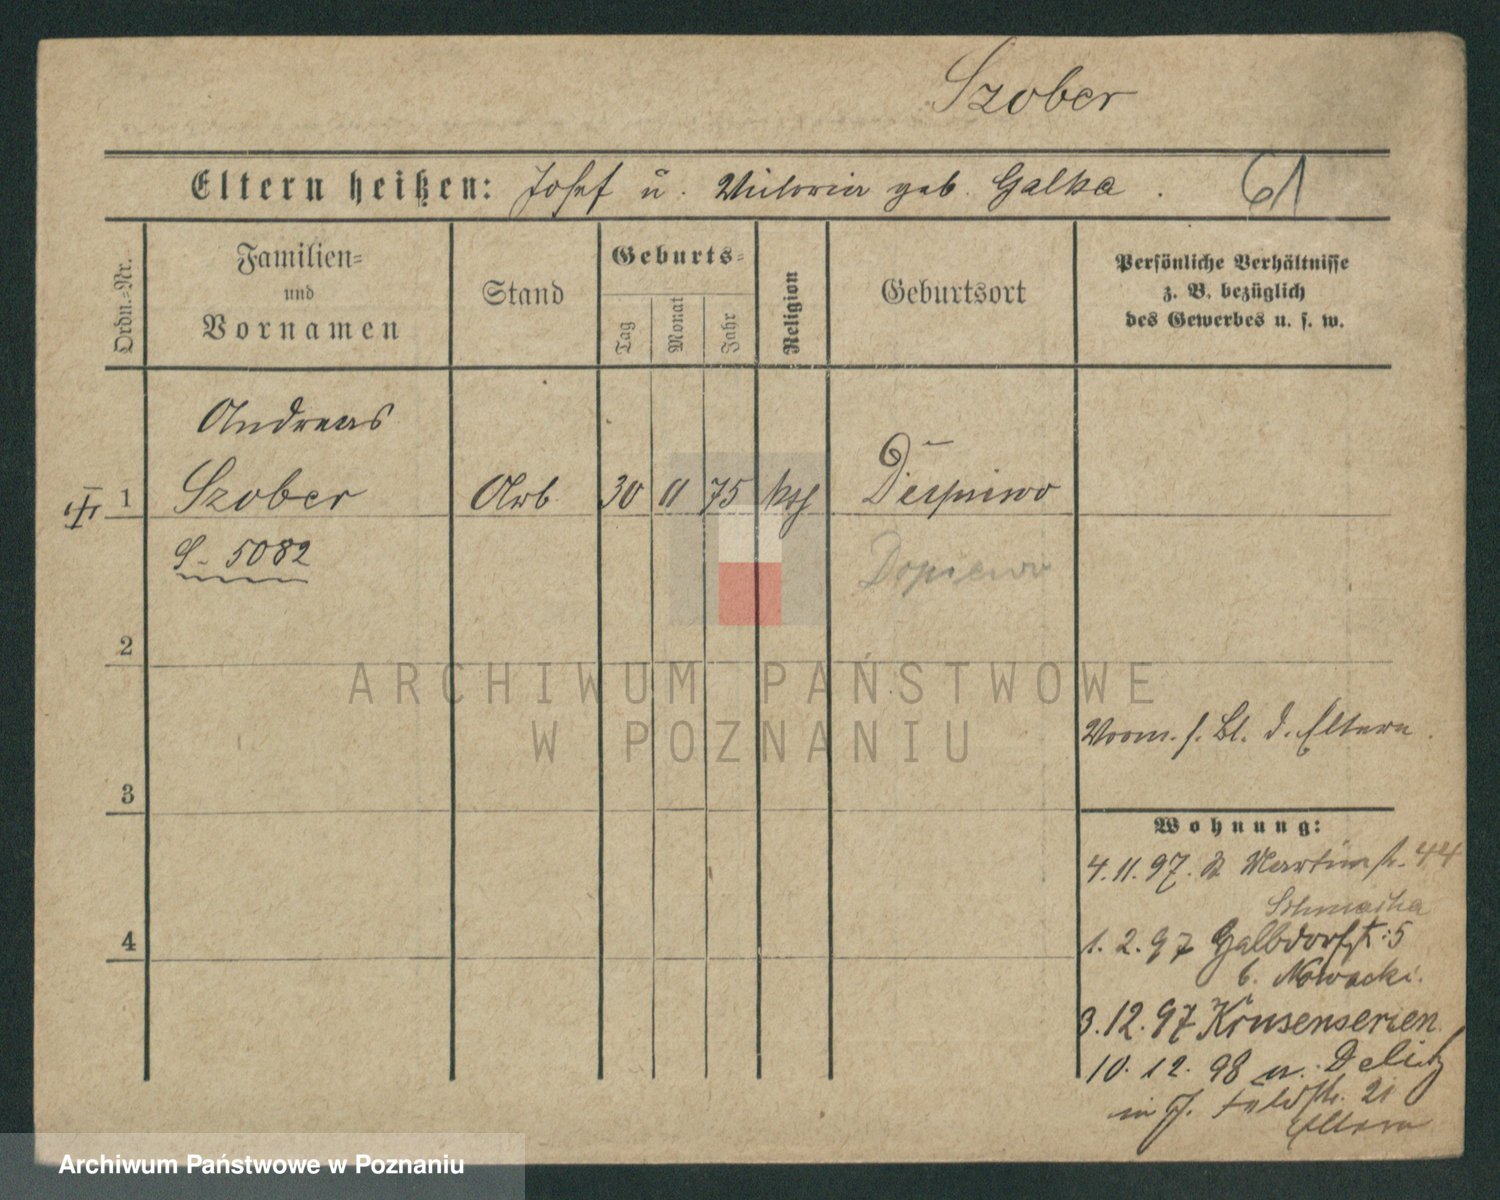 Szober
Eltern heißen: Josef u. Victoria geb. Galka.
61
Ordn.=Nr.
Familien=
und
Vornamen
Stand
Geburts=
Tag
Monat
Jahr
Religion
Geburtsort
Persönliche Verhältnisse
z. B. bezüglich
des Gewerbes u. s. w.
Andreas
1 Szober Arb. 30 11 75 ktg
S. 5082
Dopiewo
2
Vorm. s. Bl. d. Eltern.
3
Wohnung:
4.11.97. St Martinstr. 44
4
1.2.97
b. Nowacki.
3.12.97
10.12.98 a.
in J. Feldstr. 21
Eltern
ARCHIWUM PAŃSTWOWE
W POZNANIU
Archiwum Państwowe w Poznaniu